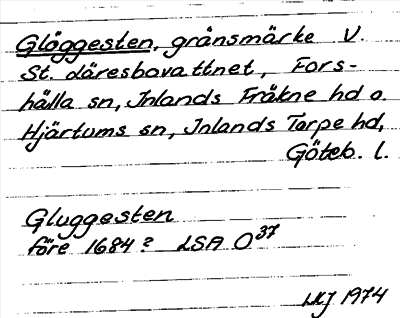 Glöggesten, gränsmärke V.
St. däresbovattnet, Fors-
hälla sn, Inlands Fräkne hd o.
Hjärtums sn, Inlands Torpe hd,
Göteb. l.
Gluggesten
före 1684? LSA O37
1974